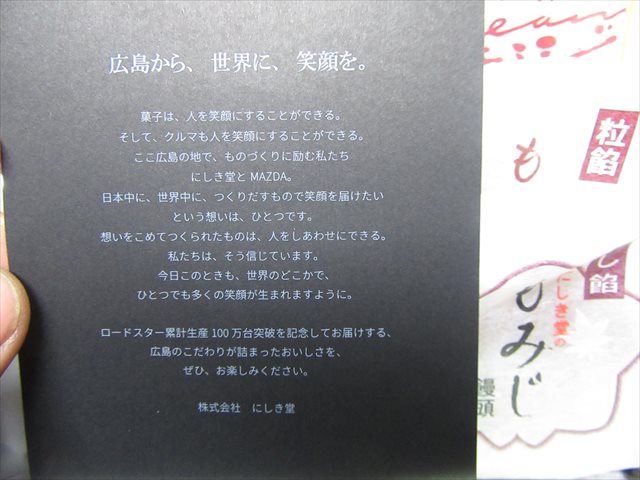 広島から、世界に、笑顔を。
菓子は、人を笑顔にすることができる。
そして、クルマも人を笑顔にすることができる。
ここ広島の地で、ものづくりに励む私たち
にしき堂と MAZDA。
日本中に、世界中に、つくりだすもので笑顔を届けたい
という想いは、ひとつです。
想いをこめてつくられたものは、人をしあわせにできる。
私たちは、そう信じています。
今日このときも、世界のどこかで、
ひとつでも多くの笑顔が生まれますように。
ロードスター累計生産 100 万台突破を記念してお届けする、
広島のこだわりが詰まったおいしさを、
ぜひ、お楽しみください。
株式会社 にしき堂
ean
粒餡
も
し餡
にしき堂の
もみじ
饅頭